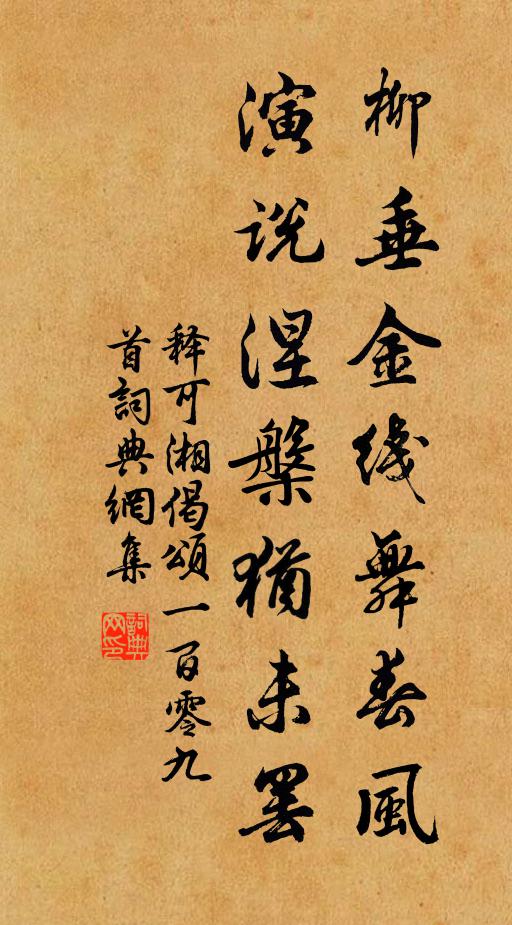 柳垂金线舞春風
演说涅槃犹未罢
释可湘偈頌一百零九
首詞典網集
詞典網印